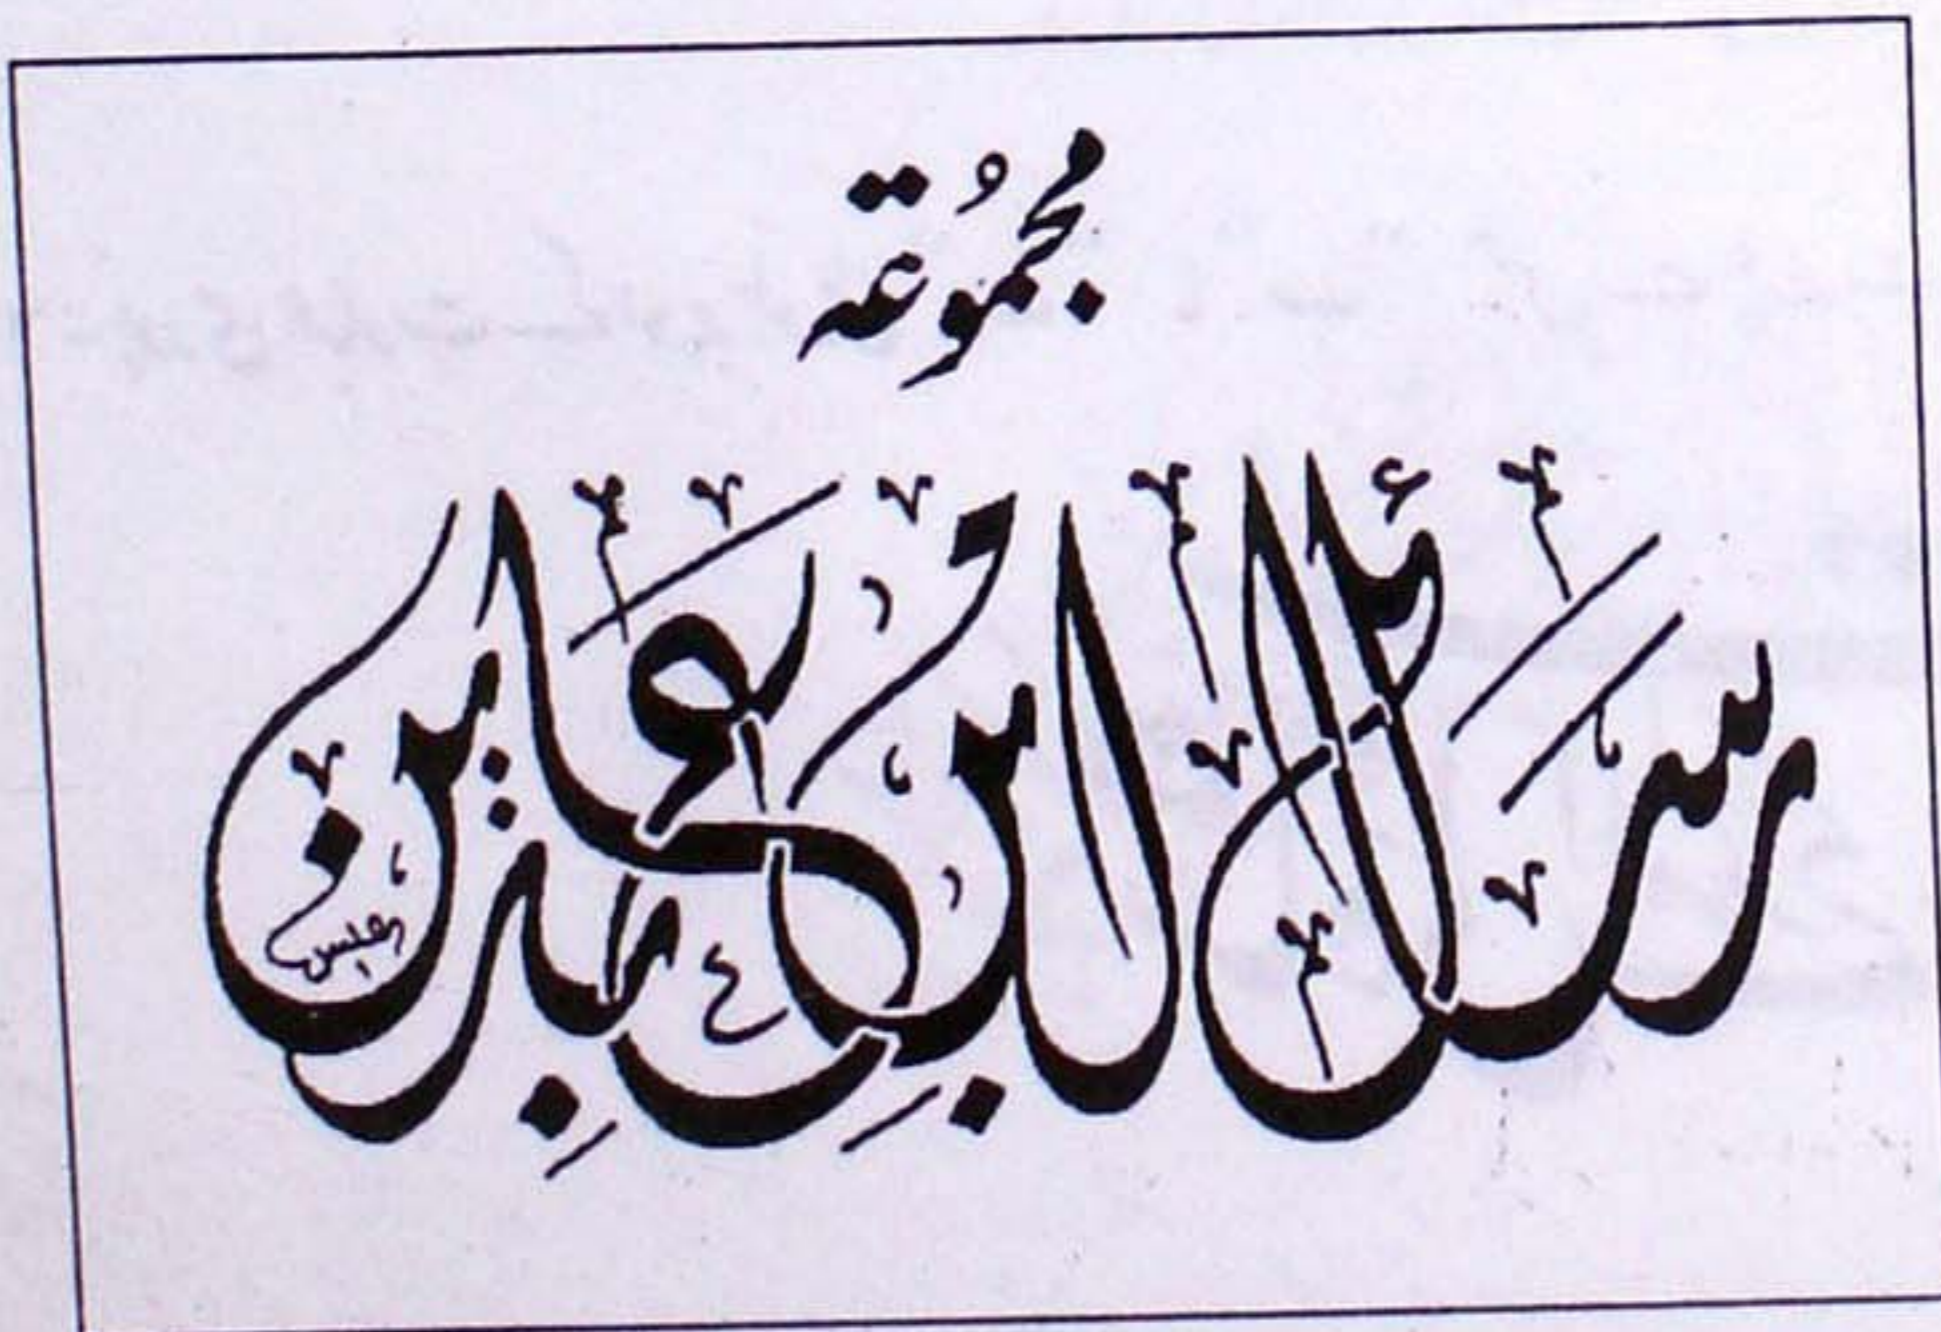 مجموعة
رسائل ابن عابدين